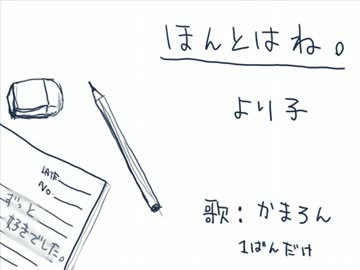 ほんとはね。
より子
歌：かまろん
1ばんだけ
DATE
No.
ずっと
好きでした。